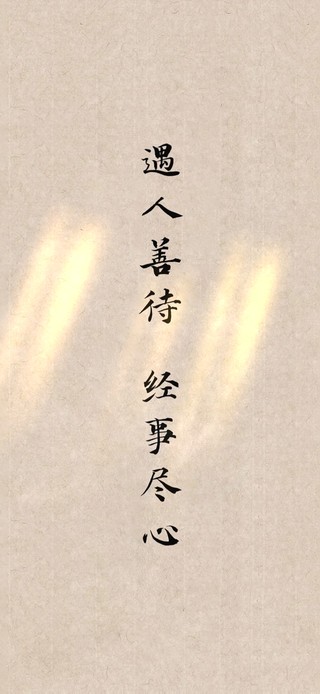 遇人善待 经事尽心